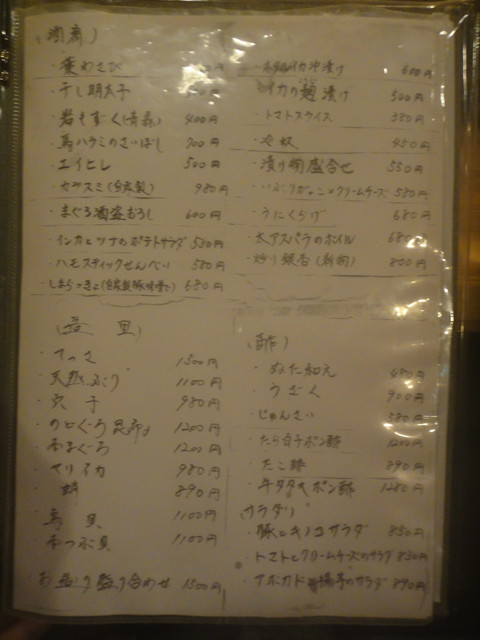 ・葉わさび
・干し明太子
・岩もずく(青森) 400円
・馬ハラミのさいぼし 700円
・エイヒレ 500円
・カラスミ(自家製) 980円
・まぐろ酒盗おろし 600円
・インカとツナのポテトサラダ 580円
・ハモスティックせんべい 580円
・しまらっきょ(自家製豚味噌) 680円
・ホタルイカ沖漬け 600円
・イカの麹漬け 500円
・トマトスライス 380円
・冷奴 450円
・漬け物盛合せ 550円
・いぶりがっことクリームチーズ 580円
・うにくらげ 680円
・太アスパラのホイル 680円
・炒り銀杏(新物) 800円
・てっさ 1500円
・天然ぶり 1100円
・穴子 980円
・のどぐろ昆布〆 1200円
・本まぐろ 1200円
・ヤリイカ 980円
・蛸 890円
・鳥貝 1100円
・本つぶ貝 1100円
お造り盛り合わせ 1500円
(酢)
・ぬた和え 480円
・うざく 900円
・じゅんさい 580円
・たら白子ポン酢 1200円
・たこ酢 890円
・牛タタキポン酢 1280円
サラダ
・豚とキノコサラダ 850円
・トマトとクリームチーズのサラダ 850円
・アボカド 湯葉のサラダ 890円